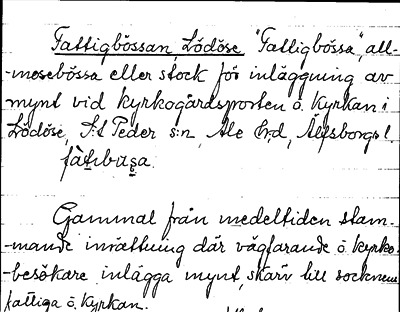 Fattigbössan, Lödöse "Fattigbössa", all-
-mosebössa eller stock för inläggning av
mynt vid kyrkogårdsporten o. Kyrkan i
Lödöse, S:t Peder s:n, Ale h:d, Älfsborgs l.
Gammal från medeltiden stam-
-mande inrättning där vägfarande o. kyrko-
-besökare inlägga mynt, skärv till socknens
fattiga o. Kyrkan.